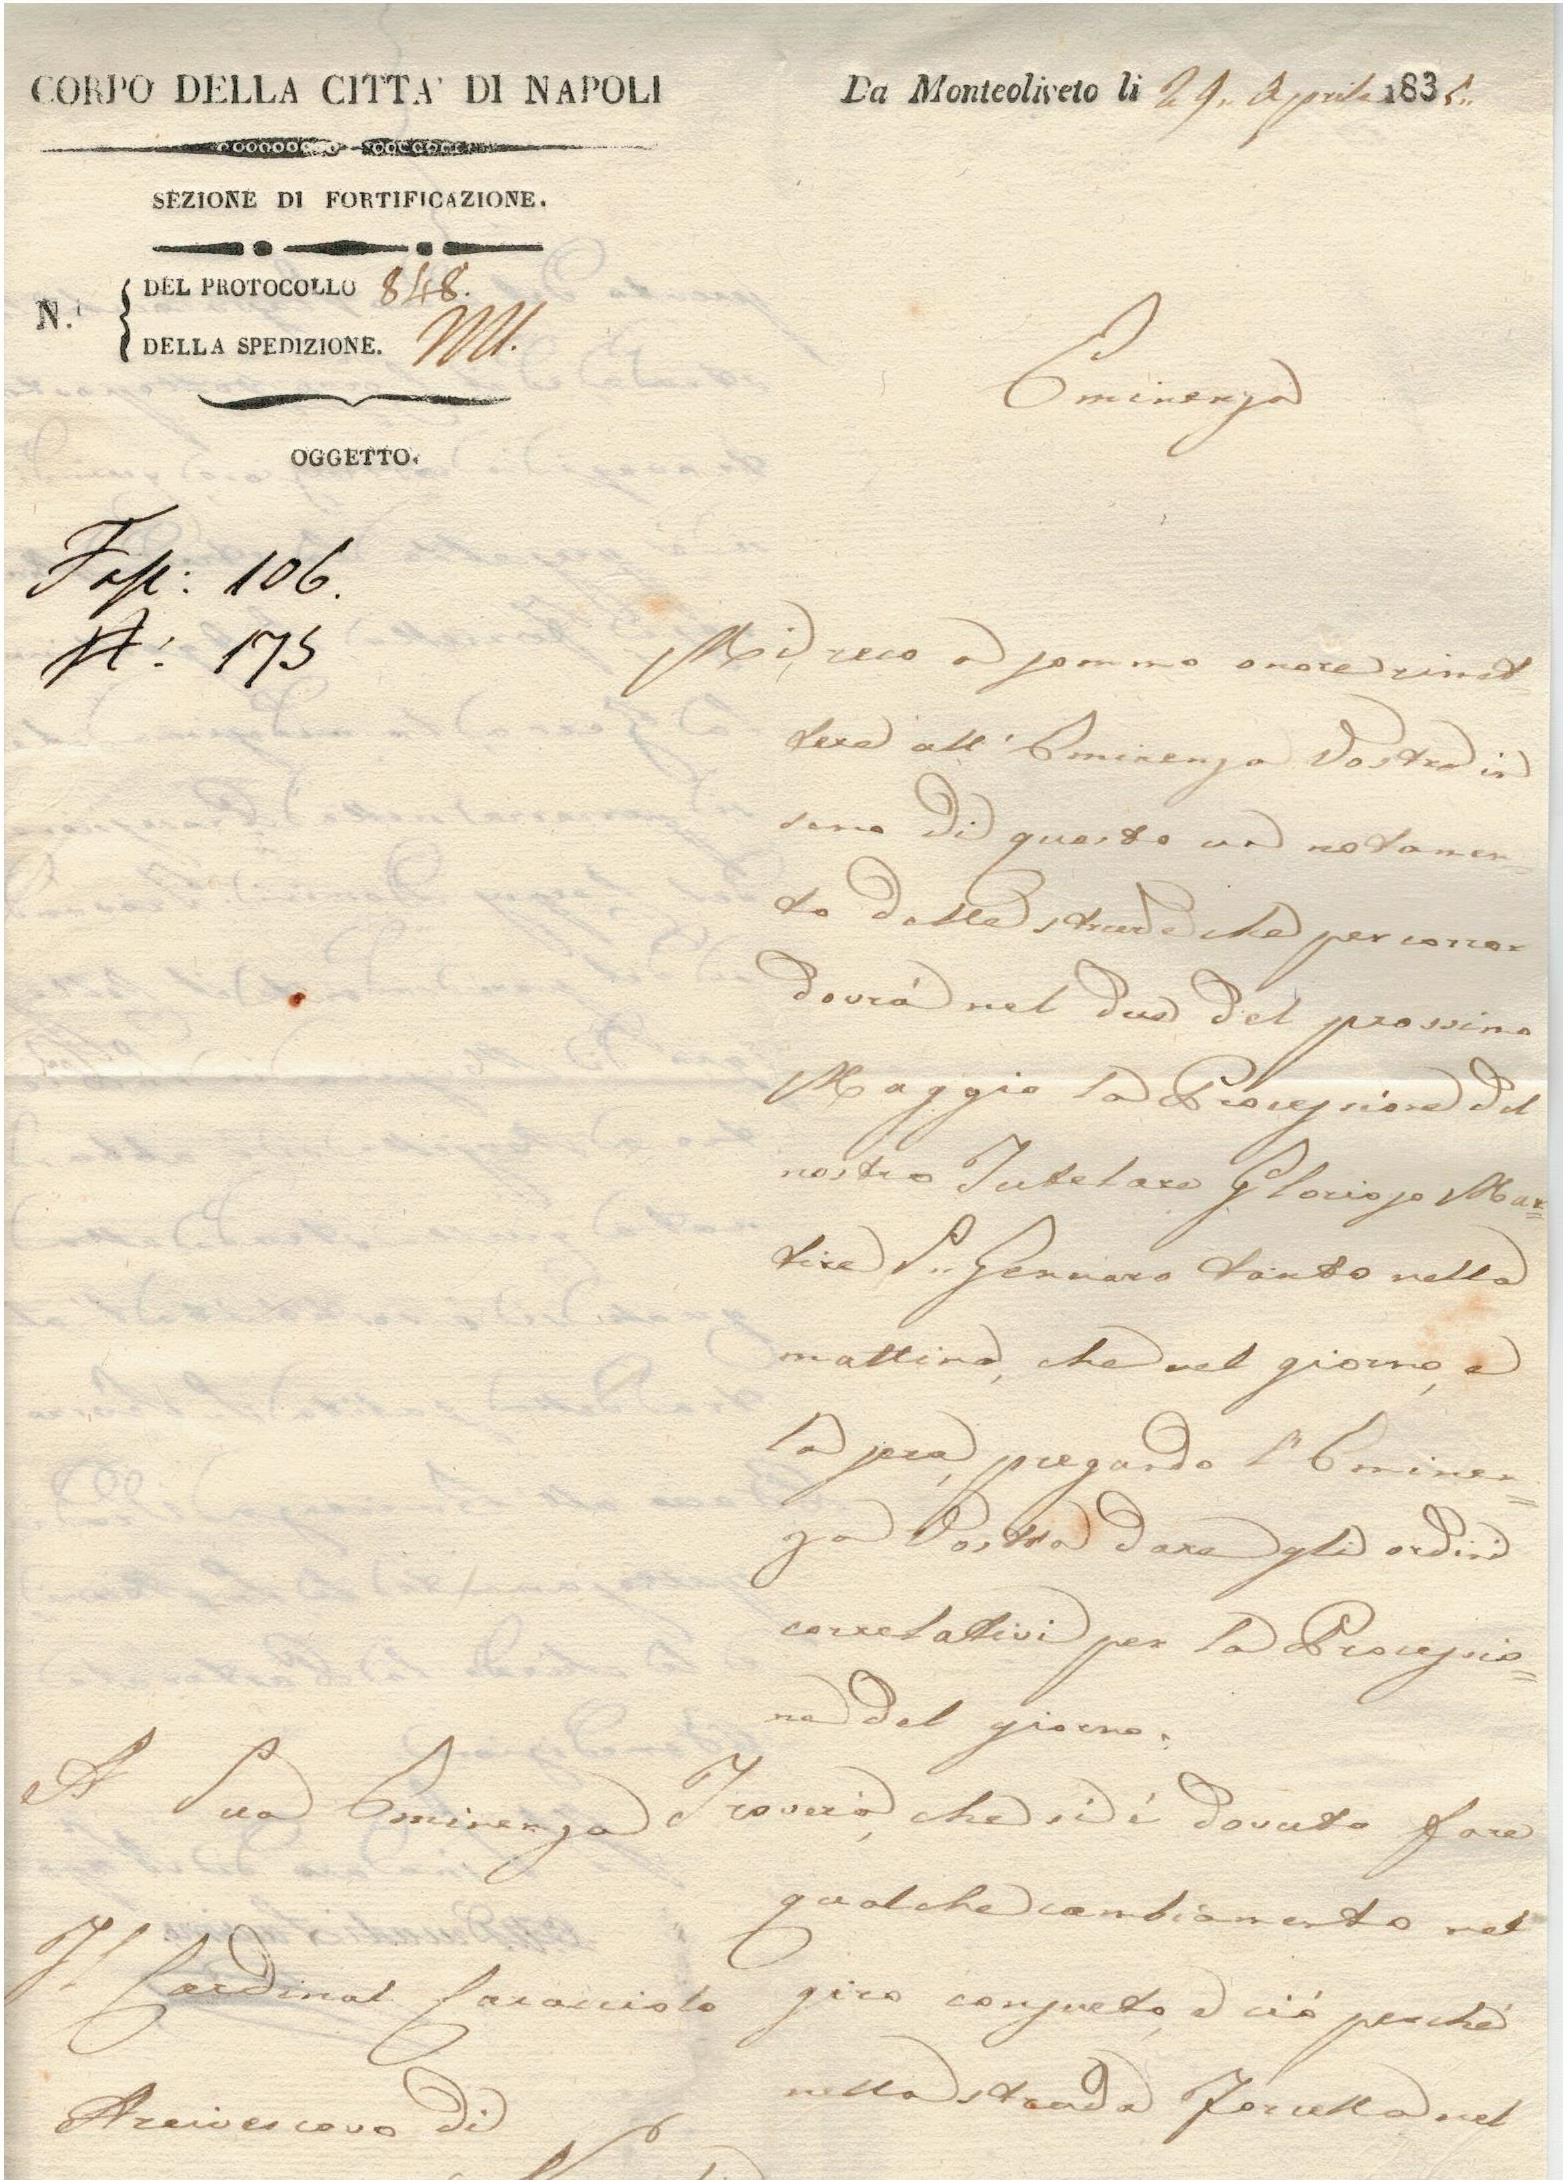 CORPO DELLA CITTA' DI NAPOLI
Da Monteoliveto li 29,, Aprile 1835,,
SEZIONE DI FORTIFICAZIONE.
N.i
DEL PROTOCOLLO 848.
DELLA SPEDIZIONE.
OGGETTO.
Eminenza
Fasc: 106.
N: 175
Mi reco a sommo onore rimet=
tere all'Eminenza Vostra in
seno di questo un notamen=
to delle strade che percorrer
dovrà nel due del prossimo
Maggio la Processione del
nostro Tutelare Glorioso Mar=
tire S.. Gennaro tanto nella
mattina, che nel giorno, e
la sera, pregando l'Eminen=
za Vostra dare gli ordini
correlativi per la Processio=
ne del giorno.
Troverà, che si è dovuto fare
qualche cambiamento nel
giro consueto, e ciò perchè
nella strada Forcella nel
A Sua Eminenza
Il Cardinal Caracciolo
Arcivescovo di